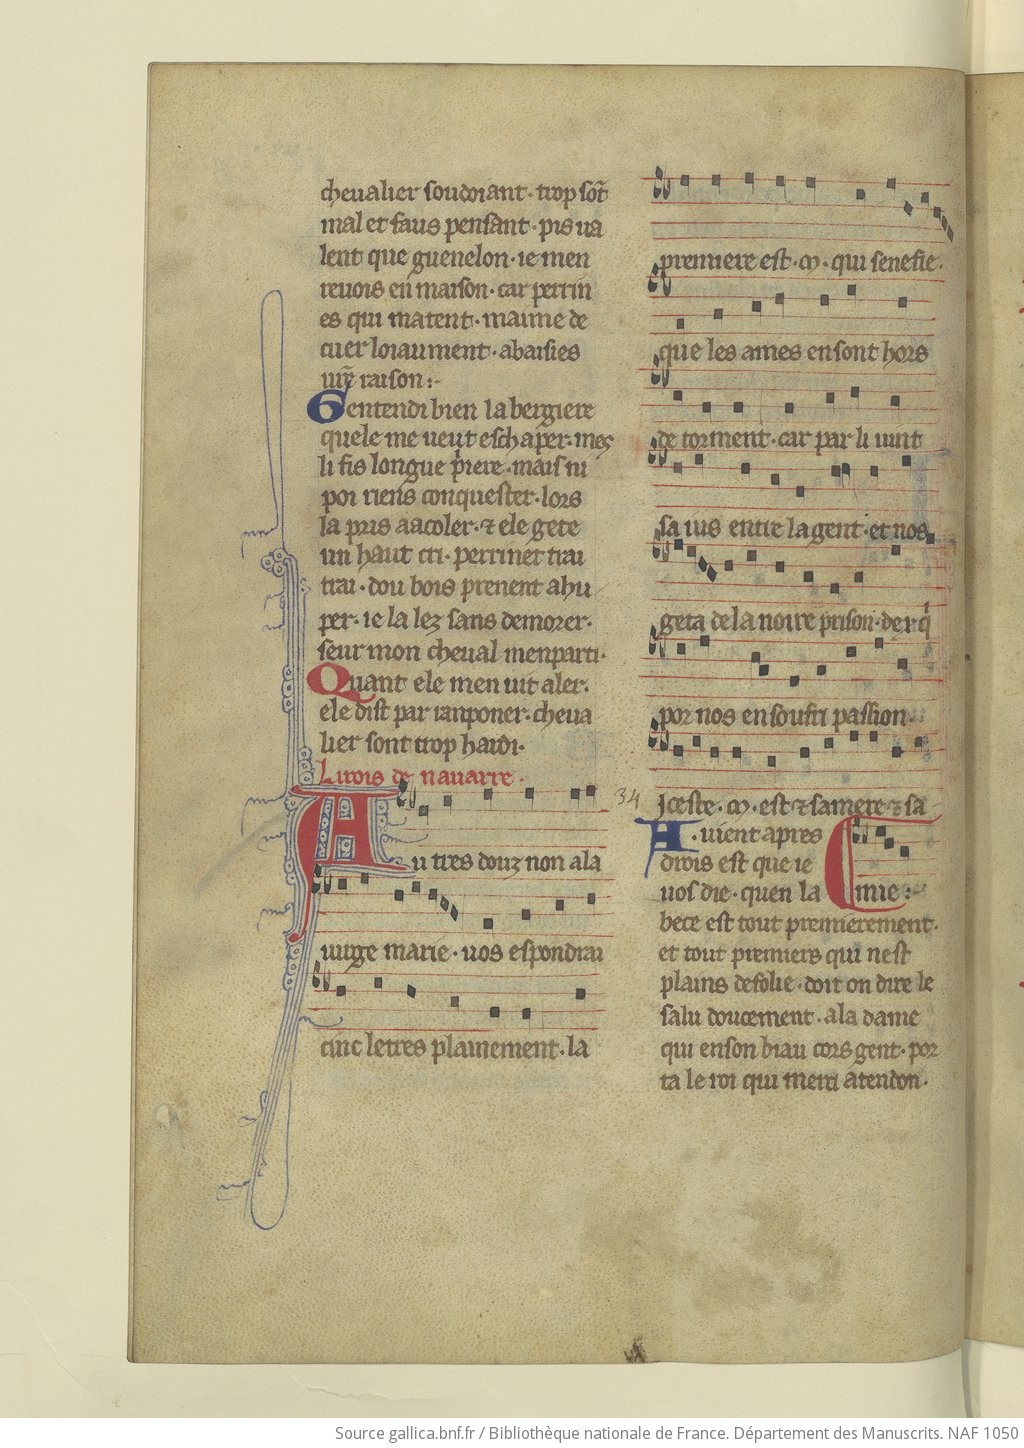 cheualier soudoiant· trop sōt
mal et faus pensant· pis ua
lent que guenelon· ie men
reuois en maison· car perrin
es qui matent· maime de
cuer loiaument· abaisies
raison:-
Gentendi bien la bergiere
quele me ueut eschaper· mes
li fis longue p̄iere· mais ni
poi riens conquester· lors
la pris aacoler· ⁊ ele gete
un haut cri· perrinet trai
trai· dou bois prenent ahu
per· ie la lez sans demorer·
seur mon cheual menparti·
Quant ele men uit aler·
ele dist par ranponer· cheua
lier sont trop hardi·
Li rois de nauarre·
Au tres douz non ala
uirge marie· uos espondrai
cinc letres plainement· la
premiere est· m· qui senefie·
que les ames en sont hors
de torment· car par li uint
sa ius entre la gent· et nos
geta de la noire prison· deus qi
por nos en soufri passion·
34
Iceste· m· est ⁊ sa mere ⁊ sa
A· uient apres
drois est que ie
uos die· quen la
mie:·
bece est tout premierement·
et tout premiers qui nest
plains de folie· doit on dire le
salu doucement· a la dame
qui en son biau cors gent· por
ta le roi qui merci atendon·
Source gallica.bnf.fr / Bibliothèque nationale de France. Département des Manuscrits. NAF 1050